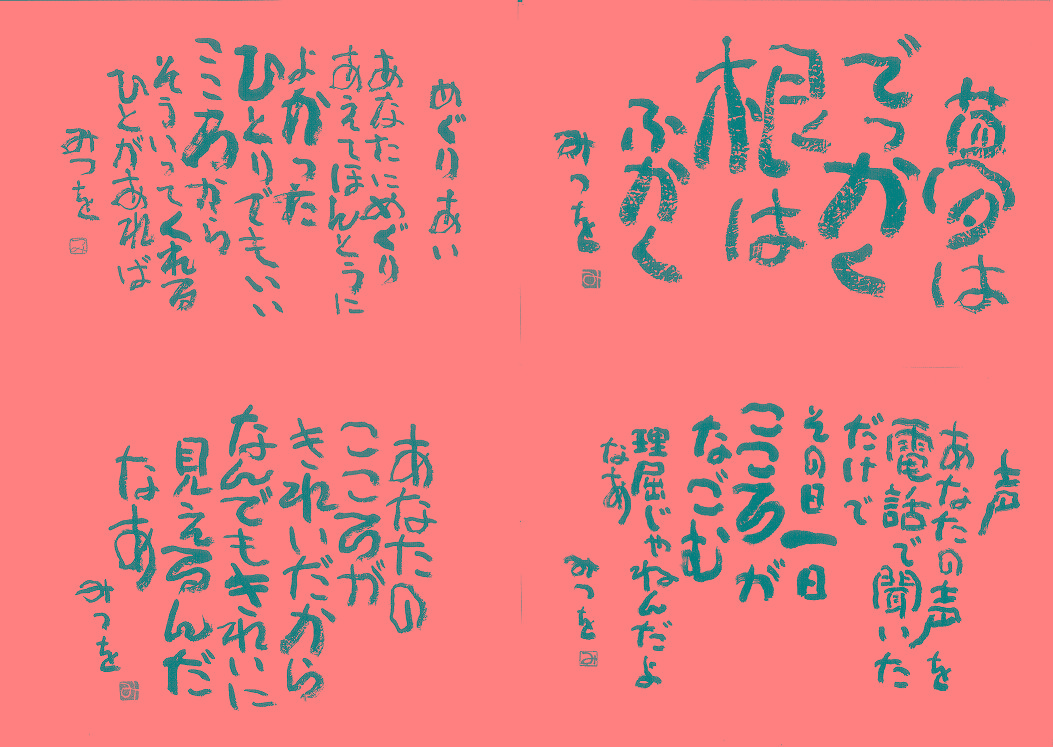 夢は
でっかく
根は
ふかく
みつを
めぐりあい
あなたにめぐり
あえてほんとうに
よかった
ひとりでもいい
こころから
そういってくれる
ひとがあれば
みつを
声
あなたの声を
電話で聞いた
だけで
その日一日
こころが
なごむ
理屈じゃねんだよ
なあ
みつを
あなたの
こころが
きれいだから
なんでもきれいに
見えるんだ
なあ
みつを